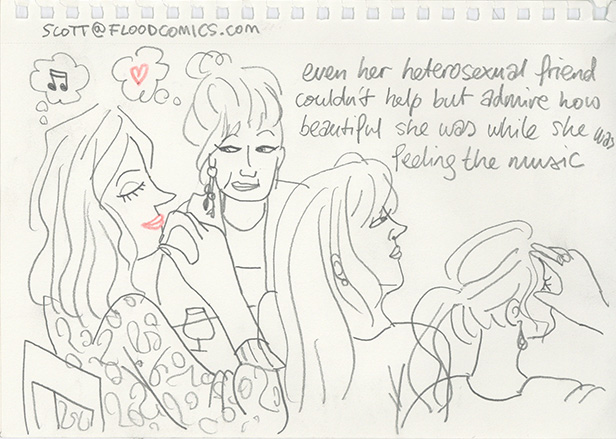 SCOTT@FLOODCOMICS.COM
even her heterosexual friend
couldn't help but admire how
beautiful she was while she was
feeling the music